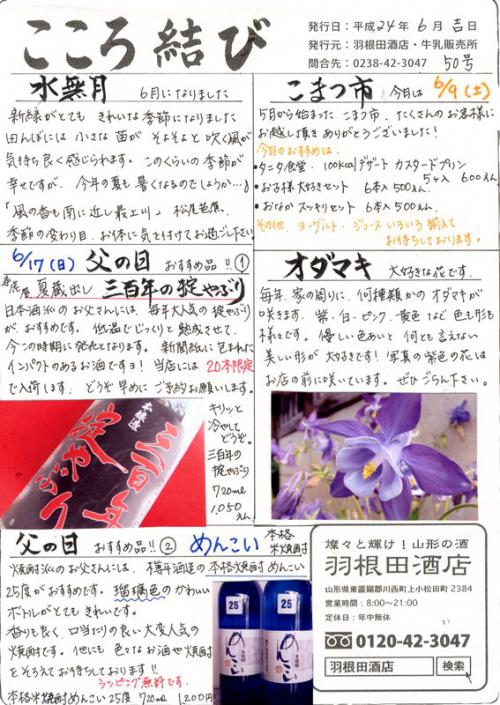 こころ結び
発行日:平成24年6月吉日
発行元:羽根田酒店・牛乳販売所
問合先:0238-42-3047 50号
水無月 6月になりました
新緑がとても きれいな季節になりました
田んぼには 小さな苗が そよそよと吹く風が
気持ち良く感じられます。このくらいの季節が
幸せですが、今年の夏も暑くなるのでしょうか…
「風の香も南に近し最上川」 松尾芭蕉
季節の変わり目、お体に気を付けてお過ごし下さい
こまつ市 今月は 6/9(土)
5月から始まった こまつ市、たくさんのお客様に
お越し頂き ありがとうございました!
今月のおすすめは、
・タニタ食堂 100kcalデザート カスタードプリン
5ヶ入 600えん
・お子様大好きセット 6本入 500えん
・おなか スッキリセット 6本入 500えん
その他 ヨーグルト・ジュース いろいろ揃えて
お待ちしております。
6/17(日) 父の日 おすすめ品!!①
寿虎屋 夏蔵出し 三百年の掟やぶり
日本酒派のお父さんには、毎年大人気の掟やぶり
が、おすすめです。低温でじっくりと熟成させて、
今この時期に発売となります。新聞紙に包まれた
インパクトのあるお酒ですョ! 当店には 20本限定
で入荷します。どうぞ早めに ご予約お願いします。
本醸造
三百年
掟やぶり
キリッと
冷やして
どうぞ。
三百年の
掟やぶり
720ml
1,050
えん
オダマキ 大好きな花です。
毎年、家の周りに、何種類かの オダマキが
咲きます。紫・白・ピンク、黄色など 色も形も
様々です。優しい色あいと 何とも言えない
美しい形が 大好きです! 写真の紫色の花は
お店の前に咲いています。ぜひごらん下さい。
父の日 おすすめ品!!② めんこい 本格
米焼酎
焼酎派のお父さんには、樽平酒造の本格焼酎めんこい
25度がおすすめです。瑠璃色のかわいい
ボトルがとてもきれいです。
香りも良く、口当たりの良い大変人気の
焼酎です。他にも 色々なお酒や焼酎
をそろえてお待ちしております!!
ラッピング無料です。
本格米焼酎めんこい 25度 720ml 1,200えん
25
めんこい
25
めんこい
燦々と輝け!山形の酒
羽根田酒店
山形県東置賜郡川西町上小松田町2384
営業時間:8:00〜21:00
定休日:年中無休
0120-42-3047
羽根田酒店 検索